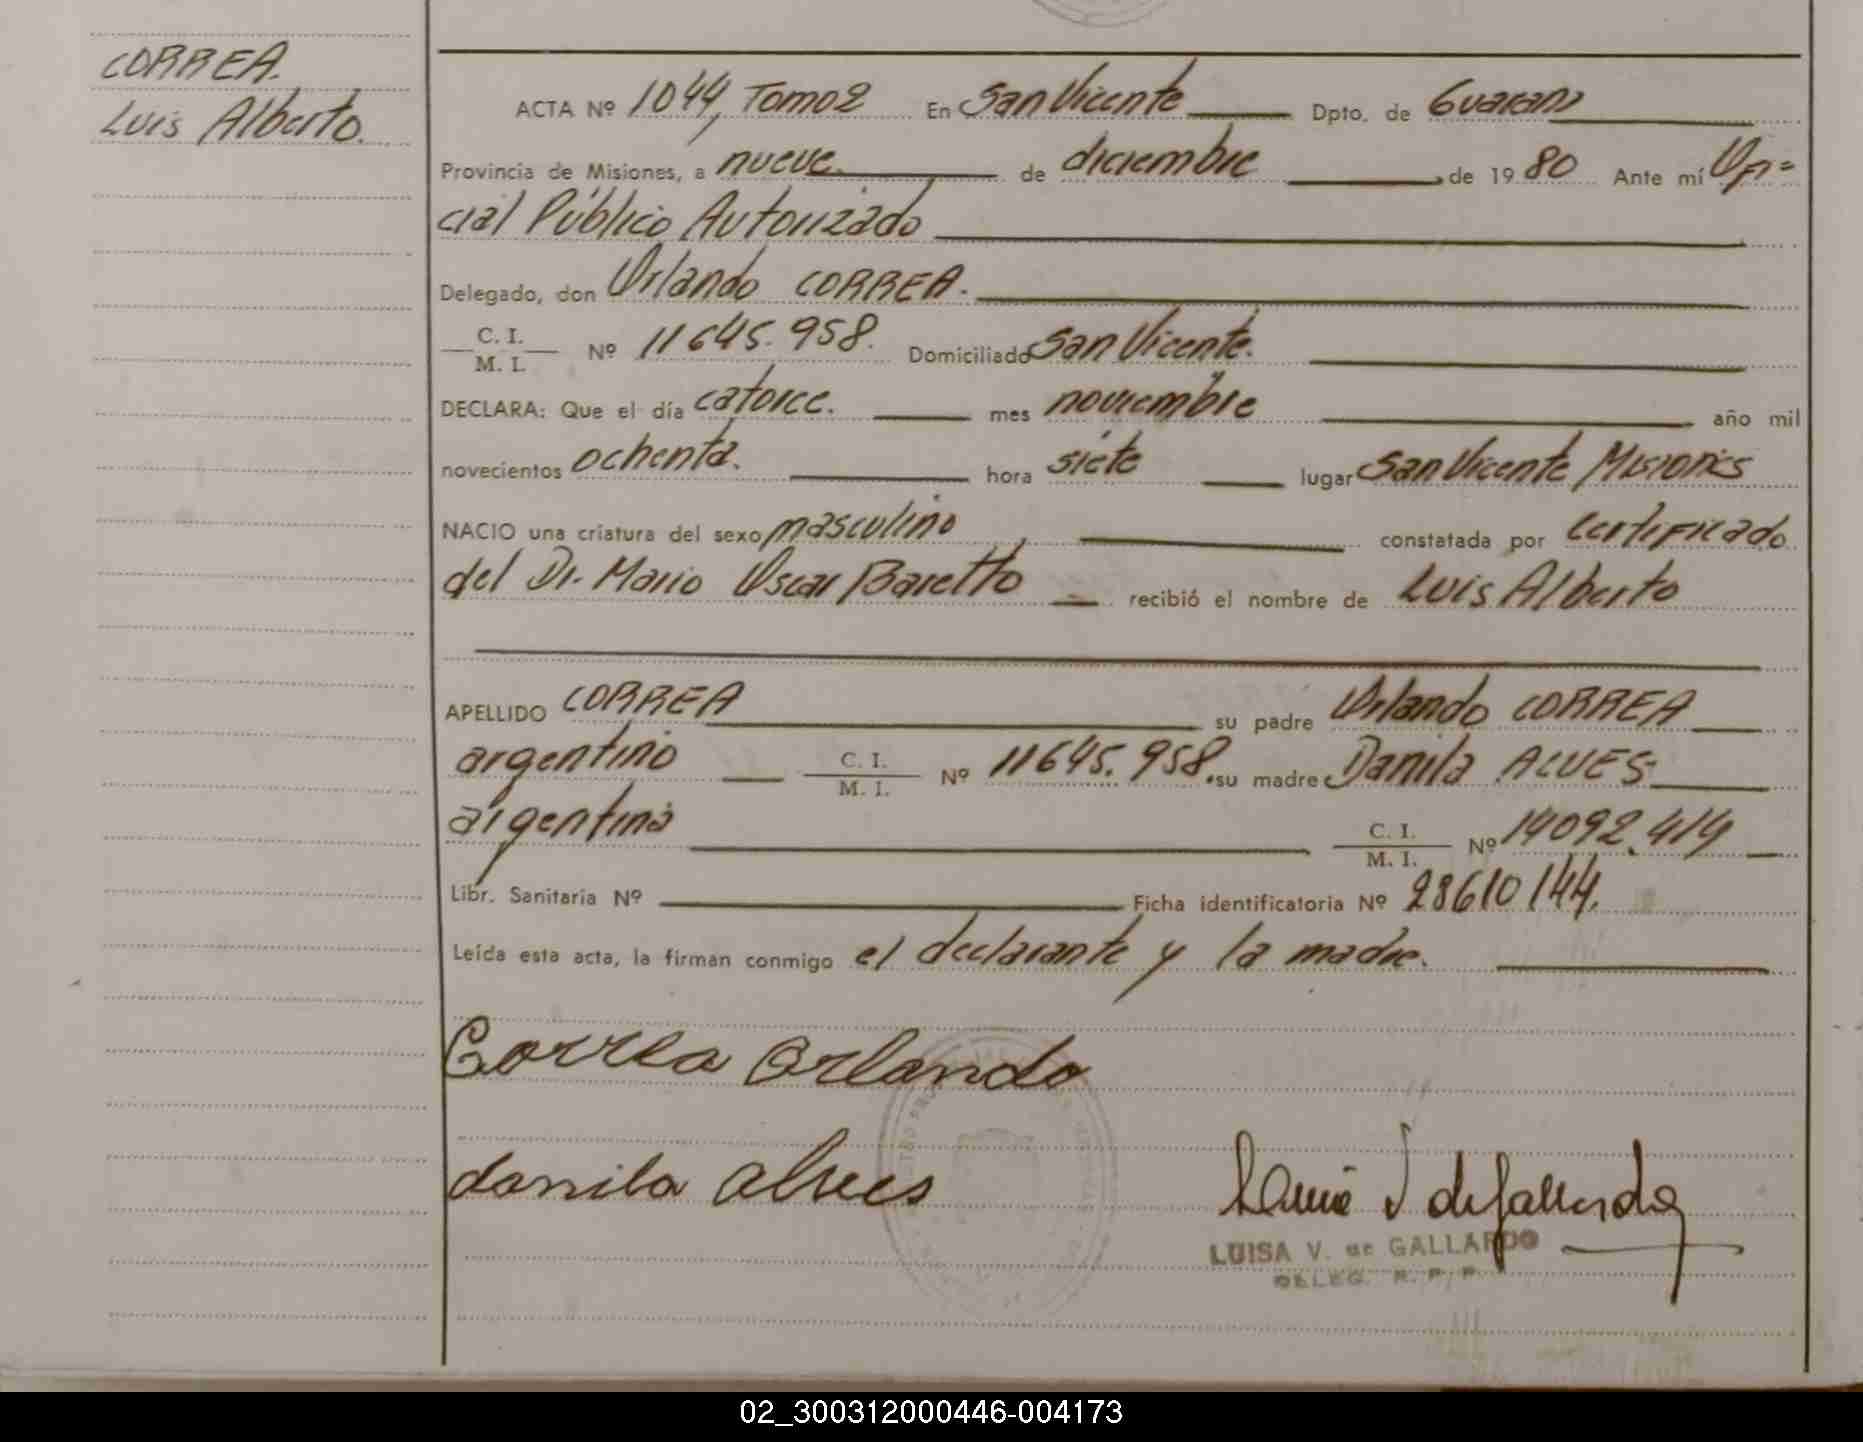 CORREA.
Luis Alberto.
ACTA Nº 1044, Tomo 2 En San Vicente Dpto. de Guarani
Provincia de Misiones, a nueve. de diciembre de 1980 Ante mí Ofi=
cial Público Autorizado
Delegado, don Orlando CORREA.
C. I.
M. I. Nº 11645.958. Domiciliado San Vicente.
DECLARA: Que el día catorce. mes noviembre año mil
novecientos ochenta. hora siete lugar San Vicente Misiones
NACIO una criatura del sexo masculino constatada por certificado
del Dr. Mario Oscar Baretto recibió el nombre de Luis Alberto
APELLIDO CORREA su padre Orlando CORREA
argentino C. I.
M. I. Nº 11645.958. su madre Danila ALVES
argentina C. I.
M. I. Nº 14092.414
Libr. Sanitaria Nº Ficha identificatoria Nº 28610144.
Leída esta acta, la firman conmigo el declarante y la madre.
Correa Orlando
danila alves
LUISA V. de GALLARDO
DELEG. R. P. P.
02_300312000446-004173